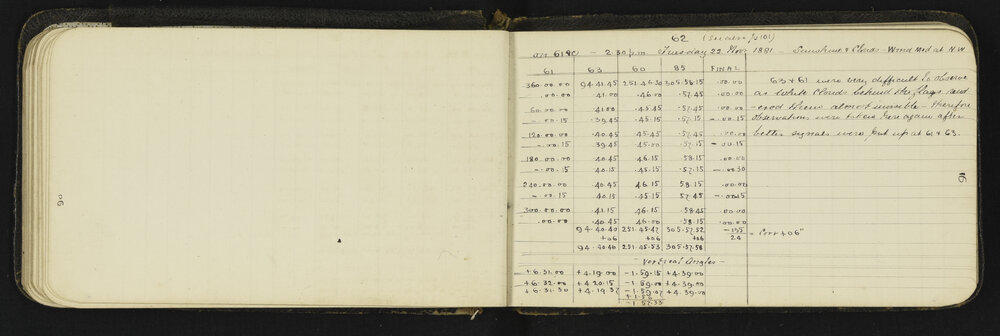 62 (See also p 101)
on 61 80 - 2.30 p.m Tuesday 22 Nov 1891 - Sunshine & Clouds - Wind Mod at N.W
61 63 60 85 FINAL
360.00.00 94.41.45 251.46.30 305.58.15 .00.00
.00.00 .41.00 .46.00 .57.45 .00.00
60.00.00 .41.00 .45.45 .57.45 .00.00
-.00.15 .39.45 .45.15 .57.15 -.00.15
120.00.00 .40.45 45.45 .57.45 .00.00
-.00.15 39.45 .45.00 .57.15 -.00.15
180.00.00 40.45 46.15 .58.15 .00.00
-.00.15 40.15 .45.15 .57.15 -.00.30
240.00.00 .40.45 46.15 58.15 .00.00
-.00.15 40.15 .45.15 57.45 -.00.15
300.00.00 .41.15 .46.15 .58.45 .00.00
.00.00 .40.45 46.00 .58.15 .00.00
94.40.40 251.45.47 305.57.52 -135
+06 +06 +06 24 = Corr +06"
94.40.46 251.45.53 305.57.58
63 & 61 were very difficult to observe
as White Clouds behind the flags rend
-ered them almost invisible - therefore
observations were taken here again after
better signals were put up at 61 & 63.
- Vertical Angles -
+6.31.00 +4.19.00 -1.59.15 +4.39.00
+6.32.00 +4.20.15 -1.59.00 +4.39.00
+6.31.30 +4.19.37 -1.59.07 +4.39.00
-1.57.33
90
91